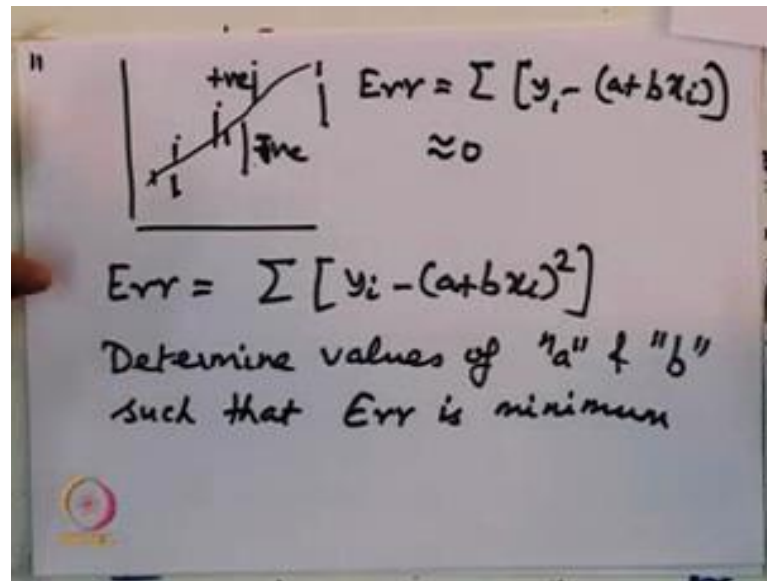 11
+ve
Err = Σ [yi - (a+bxi)]
-ve
≈0
Err = Σ [yi - (a+bxi)²]
Determine values of "a" & "b"
such that Err is minimum